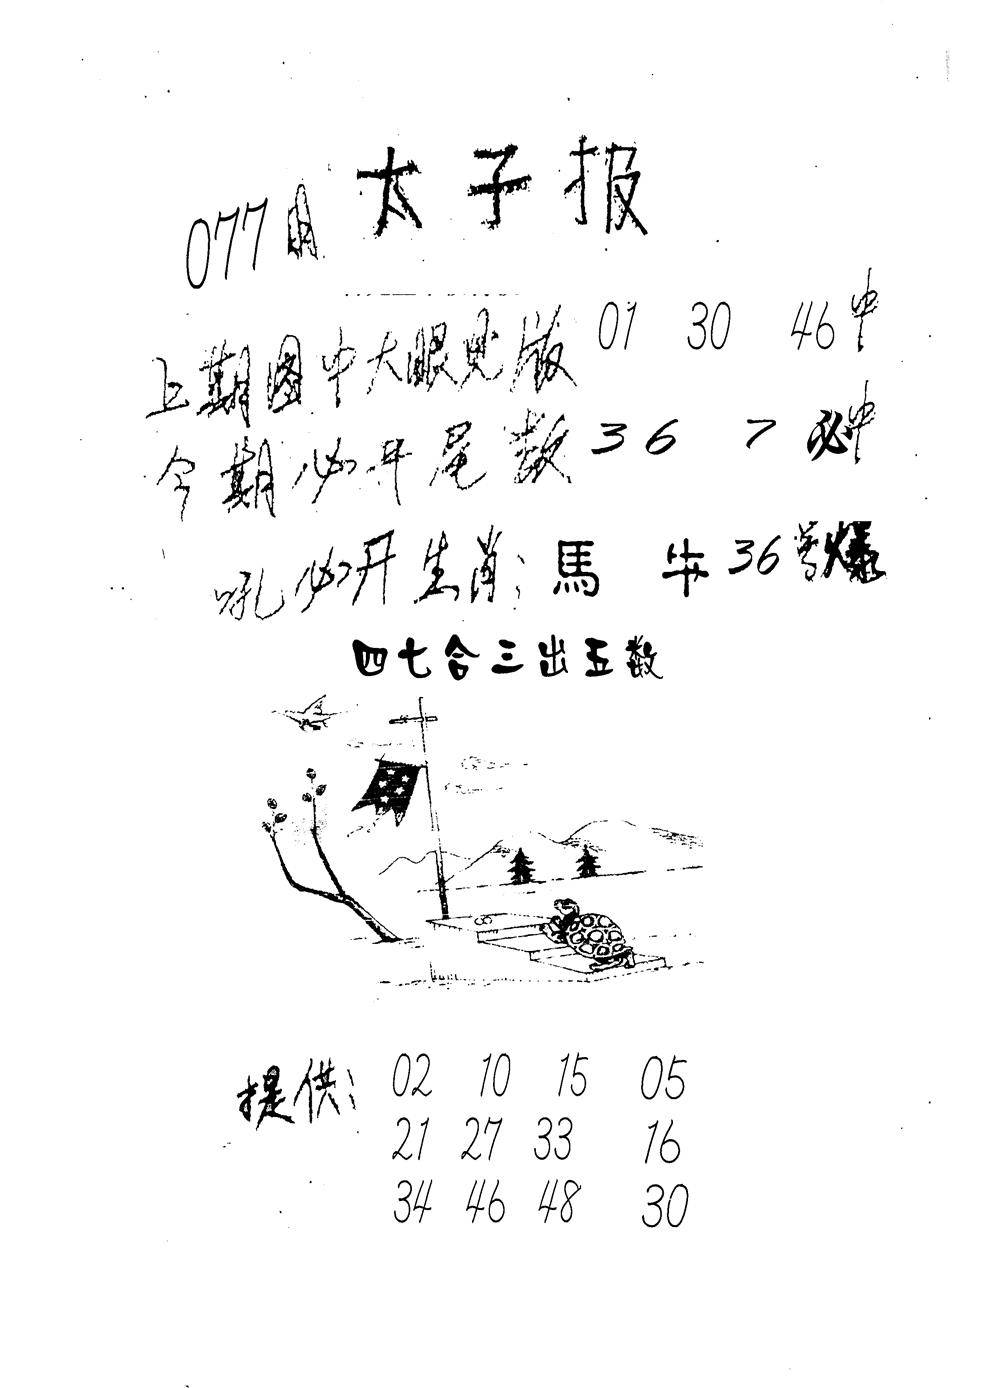 太子报
077期
上期图中大眼见版 01 30 46中
今期必开尾数 36 7 必中
吼必开生肖: 馬 牛 36 爆
四七合三出五数
提供: 02 10 15 05
21 27 33 16
34 46 48 30